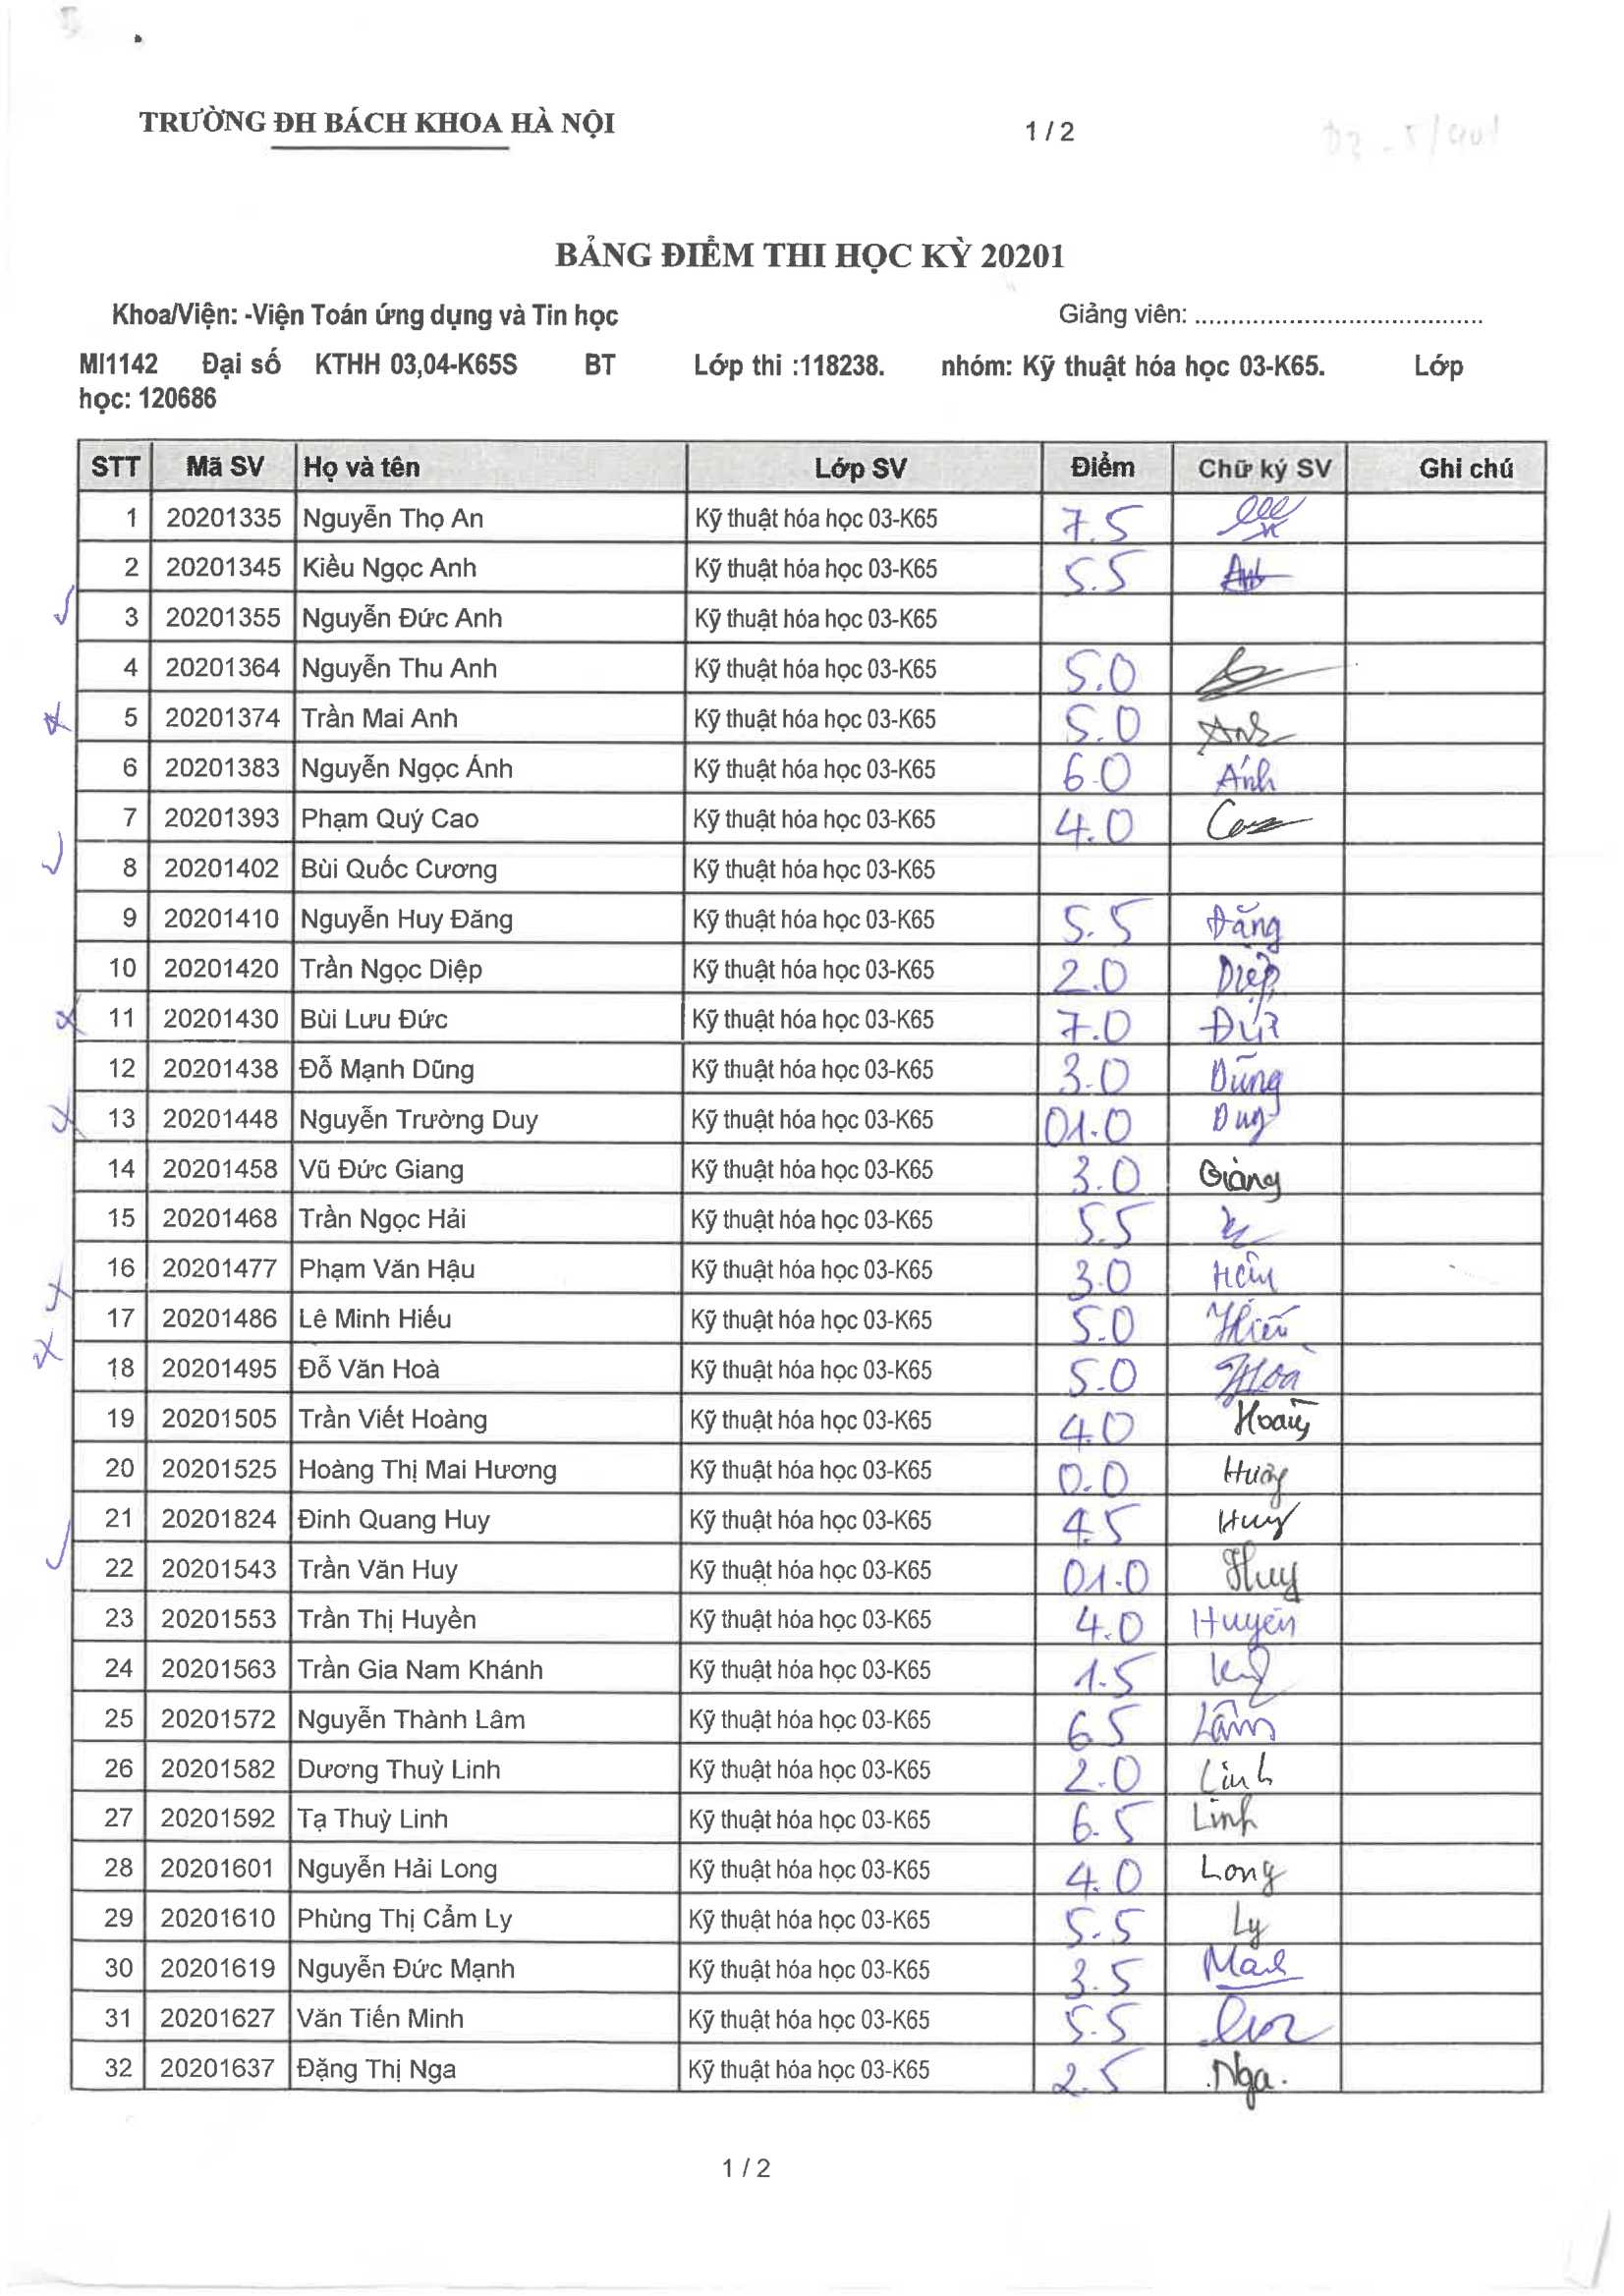 TRƯỜNG ĐH BÁCH KHOA HÀ NỘI 1 / 2
BẢNG ĐIỂM THI HỌC KỲ 20201
Khoa/Viện: -Viện Toán ứng dụng và Tin học Giảng viên: ........................................
MI1142 Đại số KTHH 03,04-K65S BT Lớp thi :118238. nhóm: Kỹ thuật hóa học 03-K65. Lớp
học: 120686
STT Mã SV Họ và tên Lớp SV Điểm Chữ ký SV Ghi chú
1 20201335 Nguyễn Thọ An Kỹ thuật hóa học 03-K65 7.5
2 20201345 Kiều Ngọc Anh Kỹ thuật hóa học 03-K65 5.5
3 20201355 Nguyễn Đức Anh Kỹ thuật hóa học 03-K65
4 20201364 Nguyễn Thu Anh Kỹ thuật hóa học 03-K65 5.0
5 20201374 Trần Mai Anh Kỹ thuật hóa học 03-K65 5.0 Anh
6 20201383 Nguyễn Ngọc Ánh Kỹ thuật hóa học 03-K65 6.0 Ánh
7 20201393 Phạm Quý Cao Kỹ thuật hóa học 03-K65 4.0
8 20201402 Bùi Quốc Cương Kỹ thuật hóa học 03-K65
9 20201410 Nguyễn Huy Đăng Kỹ thuật hóa học 03-K65 5.5 Đăng
10 20201420 Trần Ngọc Diệp Kỹ thuật hóa học 03-K65 2.0 Diệp
11 20201430 Bùi Lưu Đức Kỹ thuật hóa học 03-K65 7.0 Đức
12 20201438 Đỗ Mạnh Dũng Kỹ thuật hóa học 03-K65 3.0 Dũng
13 20201448 Nguyễn Trường Duy Kỹ thuật hóa học 03-K65 01.0 Duy
14 20201458 Vũ Đức Giang Kỹ thuật hóa học 03-K65 3.0 Giang
15 20201468 Trần Ngọc Hải Kỹ thuật hóa học 03-K65 5.5
16 20201477 Phạm Văn Hậu Kỹ thuật hóa học 03-K65 3.0 Hậu
17 20201486 Lê Minh Hiếu Kỹ thuật hóa học 03-K65 5.0 Hiếu
18 20201495 Đỗ Văn Hoà Kỹ thuật hóa học 03-K65 5.0 Hoà
19 20201505 Trần Viết Hoàng Kỹ thuật hóa học 03-K65 4.0 Hoàng
20 20201525 Hoàng Thị Mai Hương Kỹ thuật hóa học 03-K65 0.0 Hương
21 20201824 Đinh Quang Huy Kỹ thuật hóa học 03-K65 4.5 Huy
22 20201543 Trần Văn Huy Kỹ thuật hóa học 03-K65 01.0 Huy
23 20201553 Trần Thị Huyền Kỹ thuật hóa học 03-K65 4.0 Huyền
24 20201563 Trần Gia Nam Khánh Kỹ thuật hóa học 03-K65 1.5
25 20201572 Nguyễn Thành Lâm Kỹ thuật hóa học 03-K65 6.5 Lâm
26 20201582 Dương Thuỳ Linh Kỹ thuật hóa học 03-K65 2.0 Linh
27 20201592 Tạ Thuỳ Linh Kỹ thuật hóa học 03-K65 6.5 Linh
28 20201601 Nguyễn Hải Long Kỹ thuật hóa học 03-K65 4.0 Long
29 20201610 Phùng Thị Cẩm Ly Kỹ thuật hóa học 03-K65 5.5 Ly
30 20201619 Nguyễn Đức Mạnh Kỹ thuật hóa học 03-K65 3.5
31 20201627 Văn Tiến Minh Kỹ thuật hóa học 03-K65 5.5
32 20201637 Đặng Thị Nga Kỹ thuật hóa học 03-K65 2.5 Nga.
1 / 2